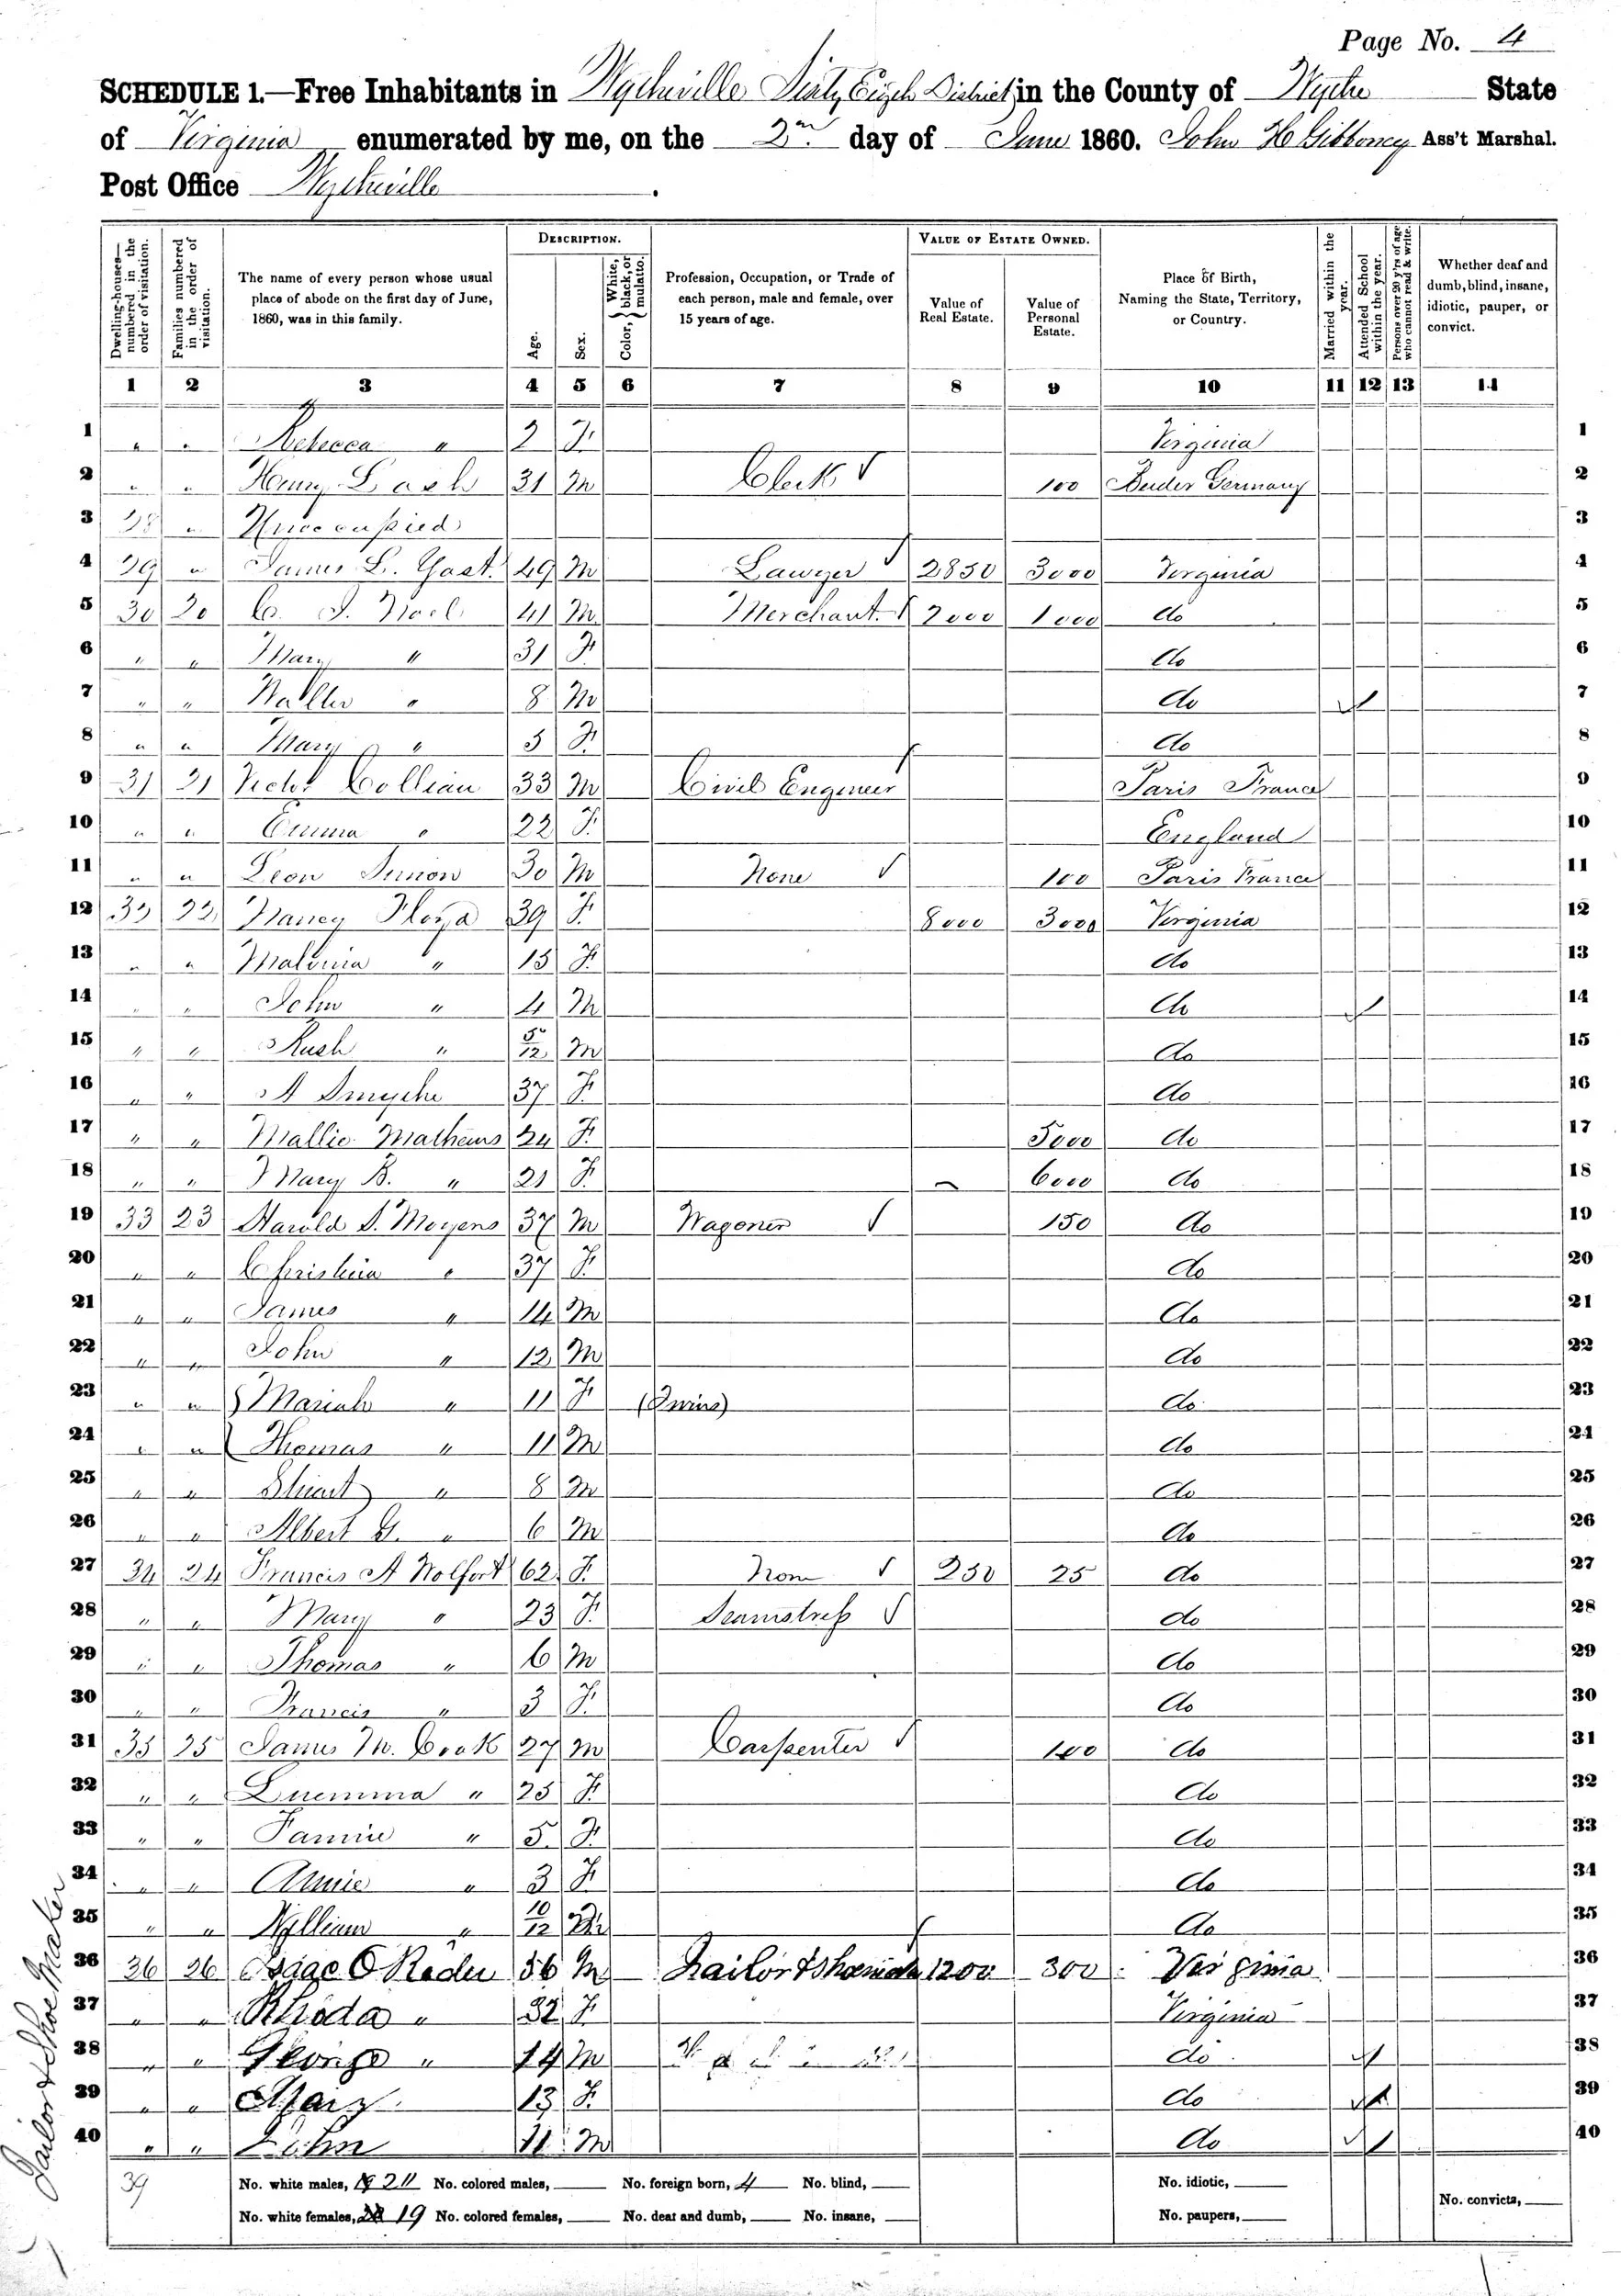 Page No. 4
SCHEDULE 1.—Free Inhabitants in Wytheville Sixty Eigth District in the County of Wythe State
of Virginia enumerated by me, on the 2nd day of June 1860. John H Gibboney Ass't Marshal.
Post Office Wytheville.
DESCRIPTION. VALUE OF ESTATE OWNED.
Dwelling-houses—numbered in the order of visitation.
Families numbered in the order of visitation.
The name of every person whose usual place of abode on the first day of June, 1860, was in this family.
Age.
Sex.
Color, { White, black, or mulatto.
Profession, Occupation, or Trade of each person, male and female, over 15 years of age.
Value of Real Estate.
Value of Personal Estate.
Place of Birth, Naming the State, Territory, or Country.
Married within the year.
Attended School within the year.
Persons over 20 y'rs of age who cannot read & write.
Whether deaf and dumb, blind, insane, idiotic, pauper, or convict.
1 2 3 4 5 6 7 8 9 10 11 12 13 14
1 " " Rebecca " 2 F Virginia 1
2 " " Henry Lash 31 M Clerk ✓ 100 Germany 2
3 28 " Unoccupied 3
4 29 " James L. Yost 49 M Lawyer ✓ 2850 3000 Virginia 4
5 30 20 C. 41 M Merchant ✓ 2000 1000 do 5
6 " " Mary " 31 F do 6
7 " " Walter " 8 M do ✓ / 7
8 " " Mary " 5 F do 8
9 31 21 Collian 33 M Civil Engineer ✓ Paris France 9
10 " " Emma " 22 F England 10
11 " " Leon Simon 30 M None ✓ 100 Paris France 11
12 32 22 Nancy Floyd 39 F 8000 3000 Virginia 12
13 " " Malvina " 15 F do 13
14 " " John " 4 M do ✓ / 14
15 " " Rush " 5/12 M do 15
16 " " A Smythe 37 F do 16
17 " " Mallie Mathews 24 F 5000 do 17
18 " " Mary B. " 21 F 6000 do 18
19 33 23 Harold S. Moyers 37 M Wagoner ✓ 150 do 19
20 " " Christina " 37 F do 20
21 " " James " 14 M do 21
22 " " John " 12 M do 22
23 " " Mariah " 11 F (Twins) do 23
24 " " Thomas " 11 M do 24
25 " " Stuart " 8 M do 25
26 " " Albert G. " 6 M do 26
27 34 24 Francis A Wolfort 62 F None ✓ 250 25 do 27
28 " " Mary " 23 F Seamstress ✓ do 28
29 " " Thomas " 6 M do 29
30 " " Francis " 3 F do 30
31 35 25 James M. Cook 27 M Carpenter ✓ 100 do 31
32 " " Luemma " 25 F do 32
33 " " " 5 F do 33
34 " " Annie " 3 F do 34
35 " " William " 10/12 M do 35
36 36 26 Isaac O Rader 36 M Tailor & shoemaker 1200 300 Virginia 36
37 " " Rhoda " 32 F Virginia 37
38 " " George " 14 M do ✓ / 38
39 " " Mary 13 F do ✓ / 39
40 " " John 11 M do ✓ / 40
39 No. white males, 21 No. colored males, No. foreign born, 4 No. blind, No. idiotic,
No. white females, 19 No. colored females, No. deaf and dumb, No. insane, No. paupers, No. convicts,
Tailor & Shoe Maker